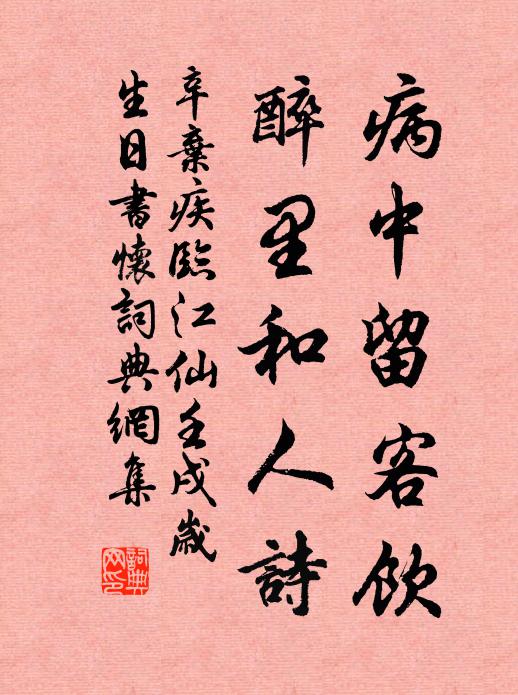 病中留客飲
醉里和人詩
辛棄疾臨江仙壬戌歲
生日書懷詞典網集
詞典
网印